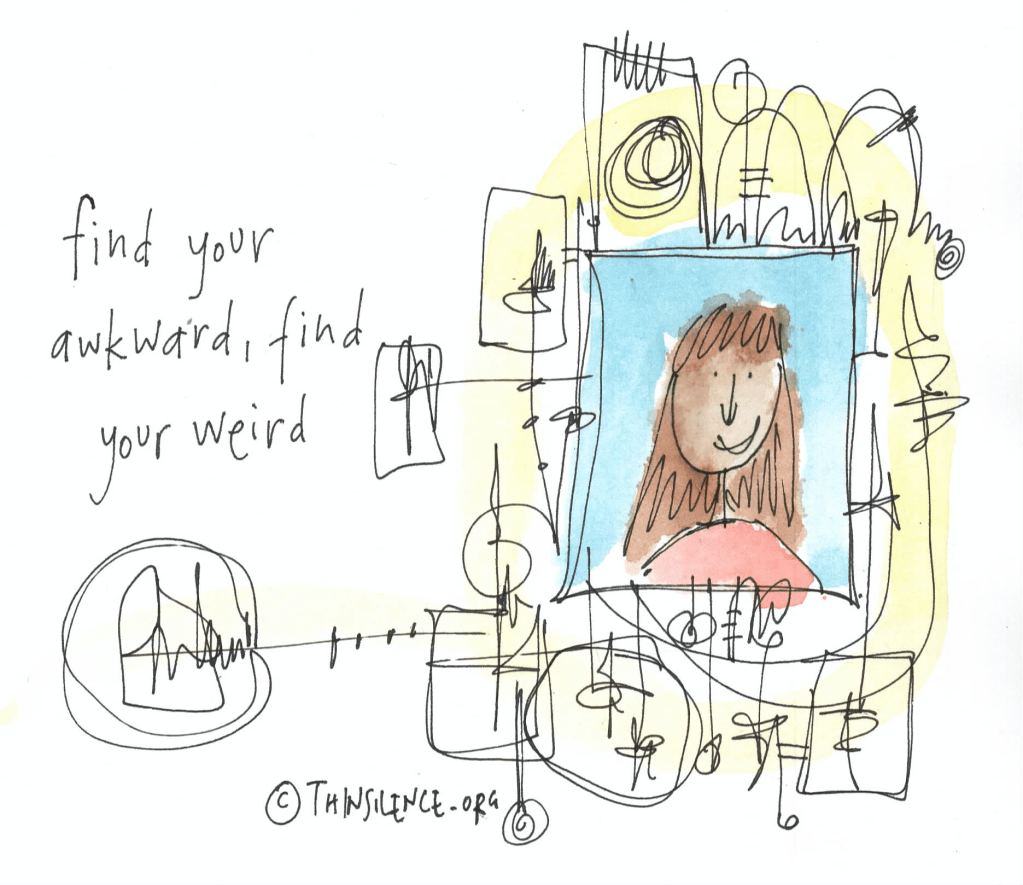 find your
awkward, find
your weird
© THINSILENCE.ORG